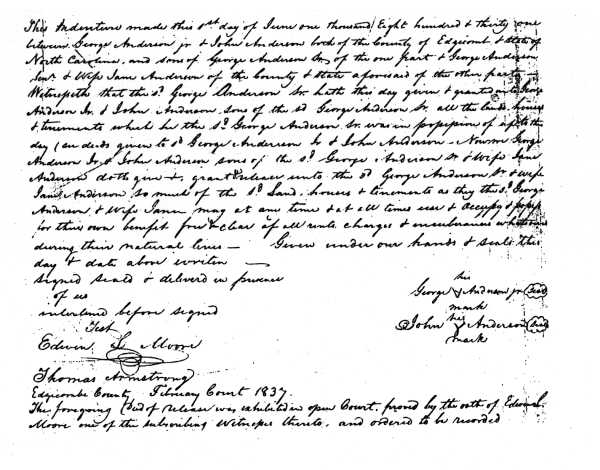 This Indenture made this 1st day of June one thousand Eight hundred & thirty one
between George Anderson jr & John Anderson both of the County of Edgicomb & State of
North Carolina and sons of George Anderson Sr of the one part & George Anderson
Senr. & Wife Jane Anderson of the County & State aforesaid of the other part
Witnesseth that the sd. George Anderson Sr hath this day given & granted unto George
Anderson Jr. & John Anderson sons of the sd George Anderson Sr. all the lands, houses
& tenements which he the sd. George Anderson Sr. was in possession of up to the
day (as deeds given to sd George Anderson Jr & John Anderson. Now we George
Anderson Jr. & John Anderson sons of the sd. George Anderson Sr & Wife Jane
Anderson doth give & grant & release unto the sd George Anderson Sr & Wife
Jane Anderson so much of the sd. Land. houses & tenements as they the sd. George
Anderson & Wife Jane may at any time & at all times use & Occupy & possess
for their own benefit free & clear of all rents charges & incumbrances whatsoever
during their natural lives — Given under our hands & seals this
day & date above written —
signed sealed & deliverd in presence
of us
interlined before signed
Test
Edwin L Moore
Thomas Armstrong
his
George Anderson jr Seal
mark
his
John Anderson Seal
mark
Edgicombe County February Court 1837.
The foregoing Deed of release was exhibited in open Court, proved by the oath of Edwin L.
Moore one of the subscribing Witnesses thereto, and ordered to be recorded